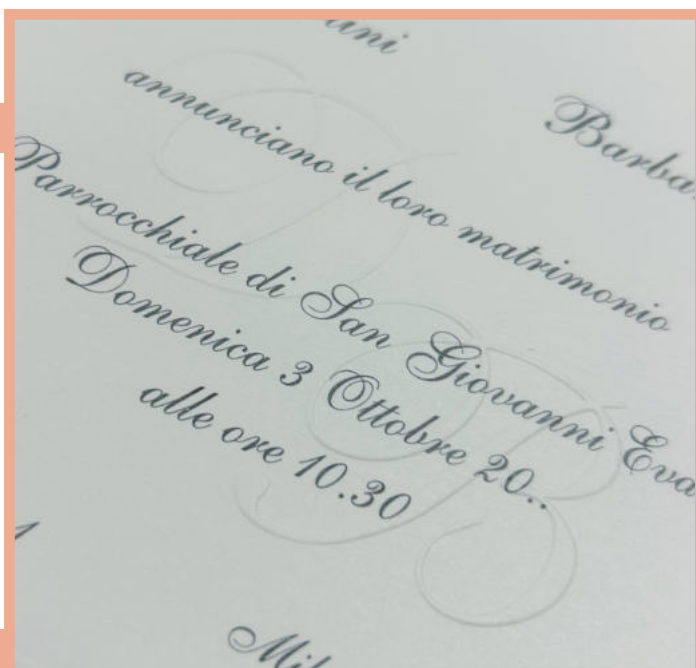 annunciano il loro matrimonio
Parrocchiale di San Giovanni
Domenica 3 Ottobre 20..
alle ore 10.30